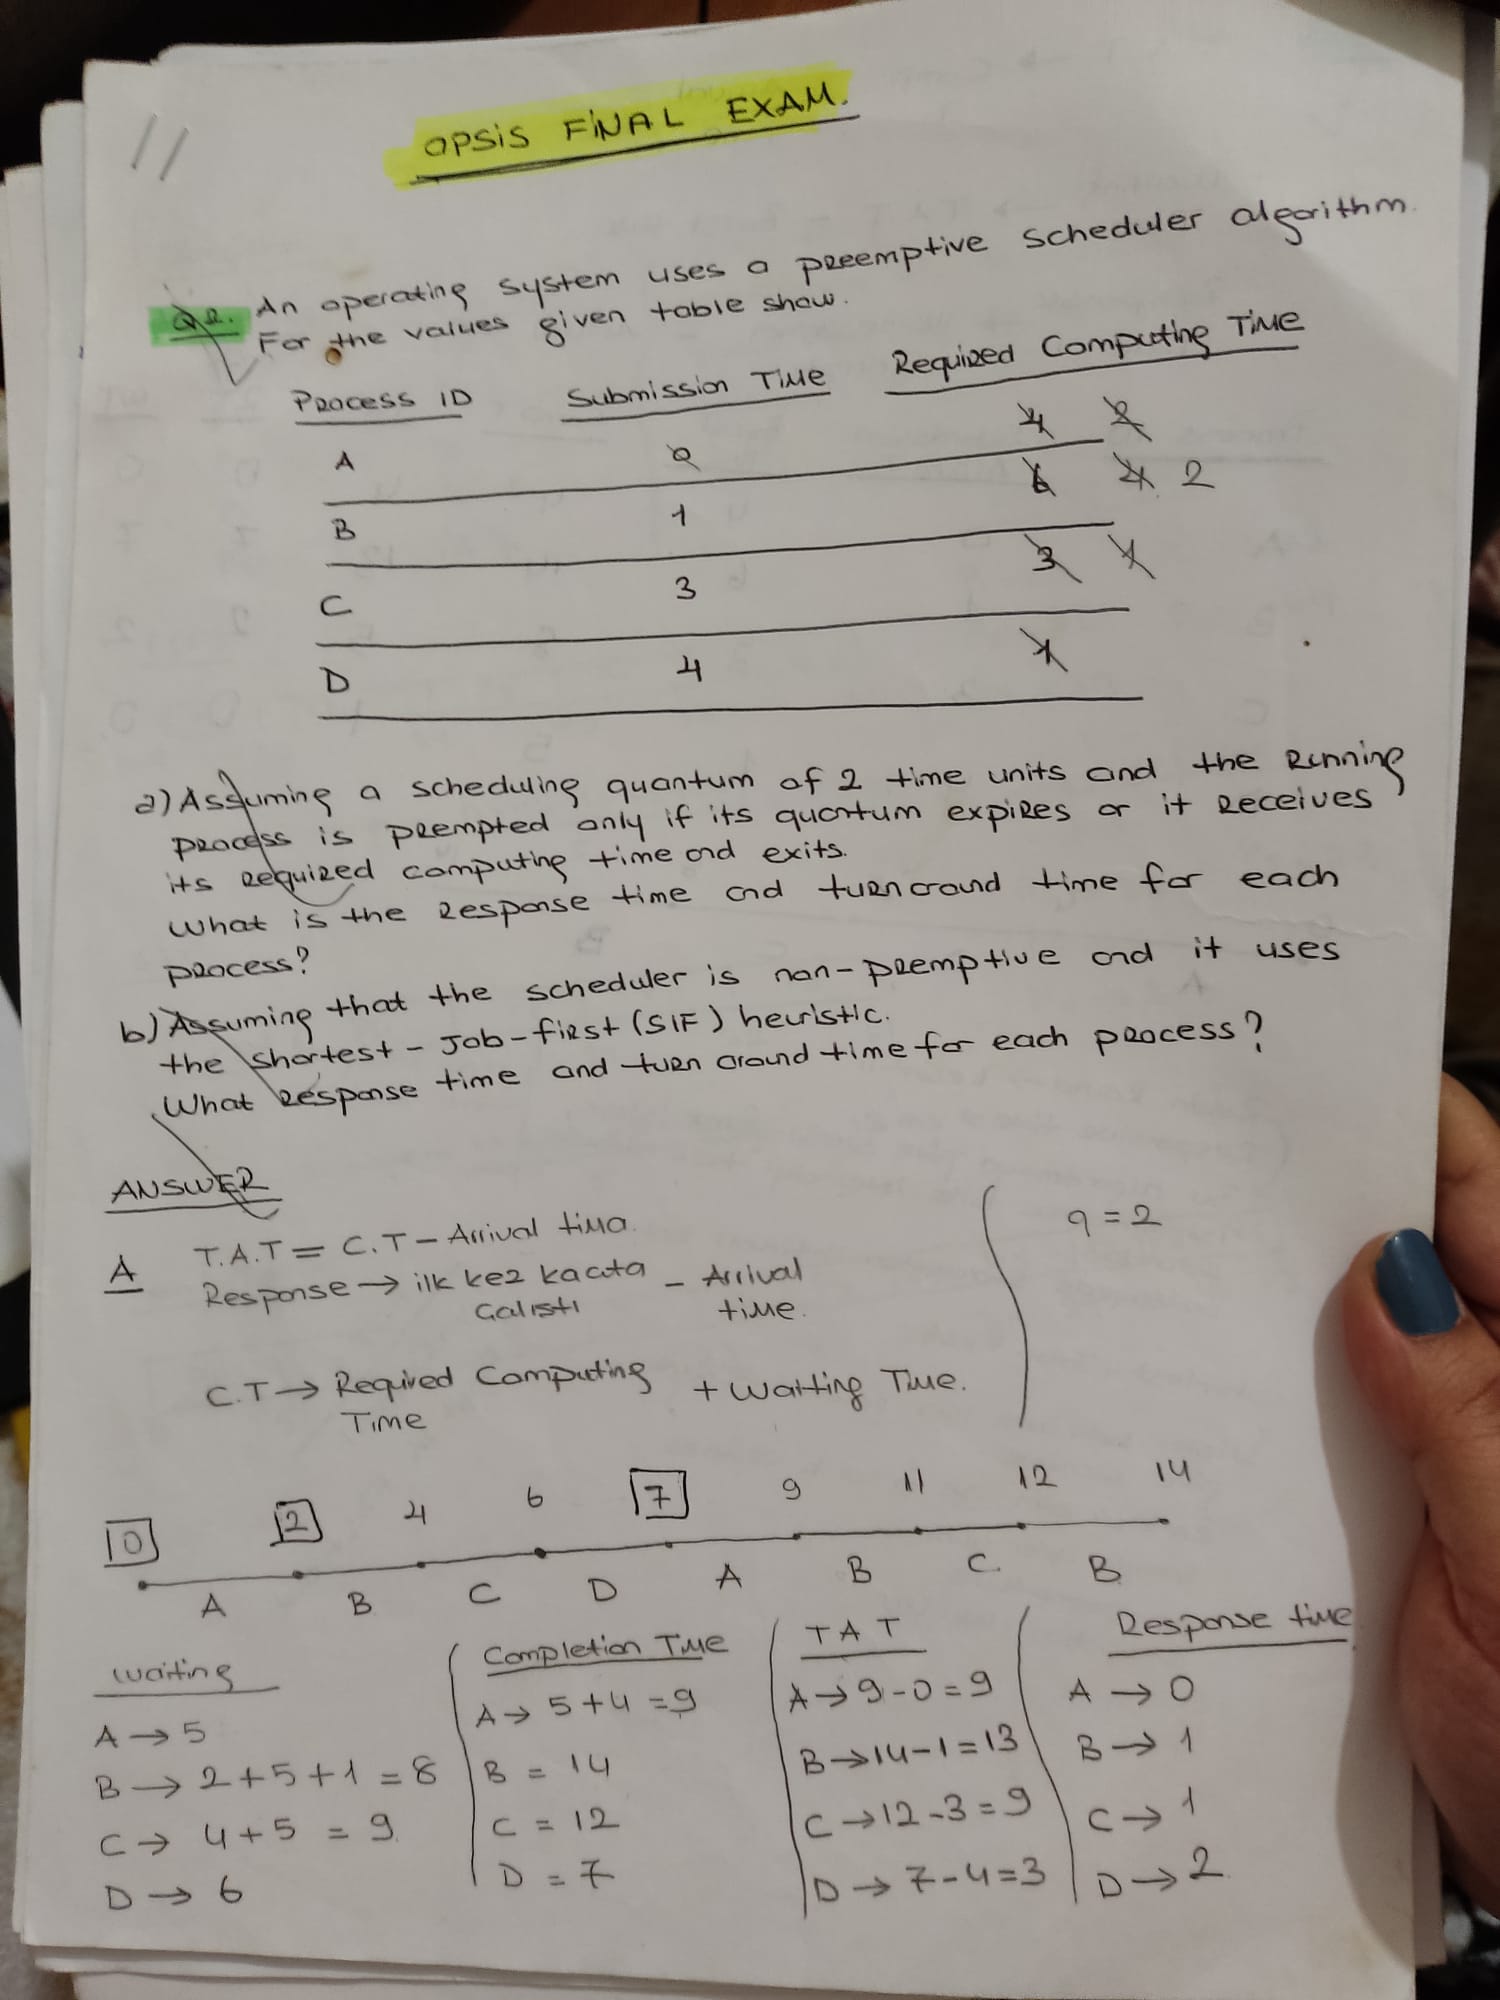 OPSİS FİNAL EXAM.
Q2. An operating system uses a preemptive scheduler algorithm.
For the values given table show.
Process ID Submission Time Required Computing Time
A 0 4 2
B 1 6 4 2
C 3 3 1
D 4 1
a) Assuming a scheduling quantum of 2 time units and the Running
process is preempted only if its quantum expires or it receives
its required computing time and exits.
What is the response time and turn around time for each
process?
b) Assuming that the scheduler is non-preemptive and it uses
the shortest - Job - first (SJF) heuristic.
What response time and turn around time for each process?
ANSWER
A T.A.T = C.T - Arrival time.
Response → ilk kez kaçta - Arrival
Çalıştı time.
q = 2
C.T → Required Computing + Waiting Time.
Time
0 2 4 6 7 9 11 12 14
A B C D A B C B
Waiting
A → 5
B → 2+5+1 = 8
C → 4+5 = 9
D → 6
Completion Time
A → 5+4 = 9
B = 14
C = 12
D = 7
TAT
A → 9-0 = 9
B → 14-1 = 13
C → 12-3 = 9
D → 7-4 = 3
Response time
A → 0
B → 1
C → 1
D → 2